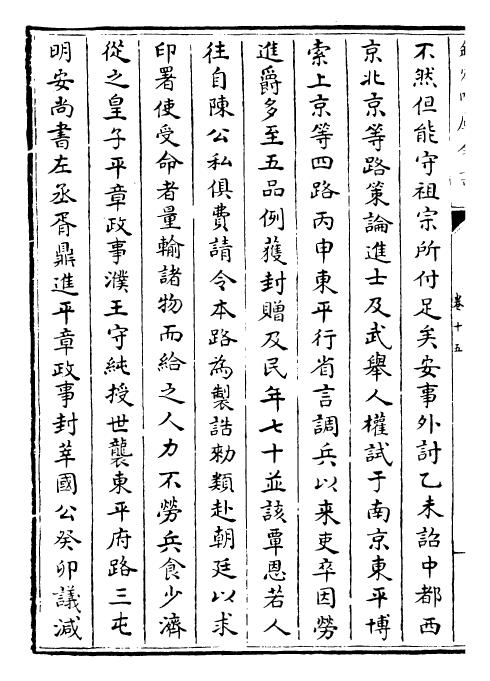 不然但能守祖宗所付足矣安事外討乙未詔中都西
京北京等路策論進士及武舉人權試于南京東平博
索上京等四路丙申東平行省言調兵以来吏卒因勞
進爵多至五品例獲封贈及民年七十並該覃恩若人
往自陳公私俱費請令本路為製誥勅類赴朝廷以求
印署使受命者量輸諸物而給之人力不勞兵食少濟
從之皇子平章政事濮王守純授世襲東平府路三屯
明安尚書左丞胥鼎進平章政事封莘國公癸卯議減
卷十五